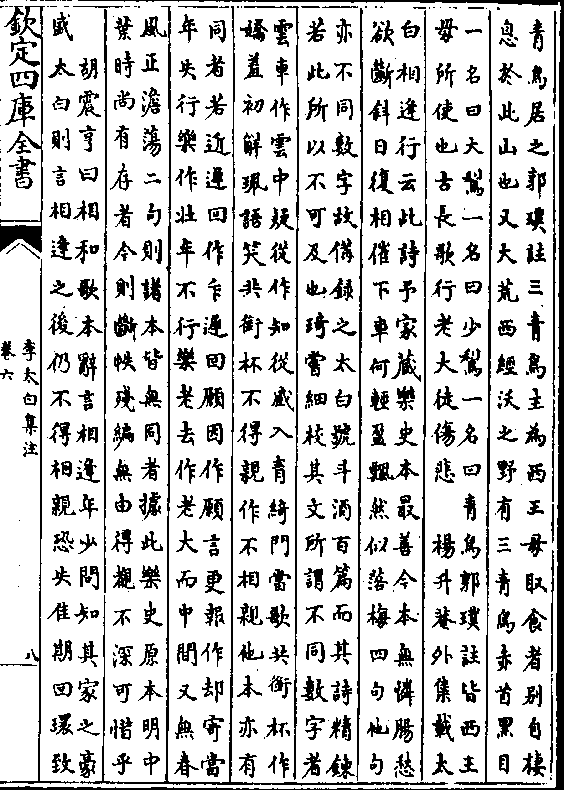 青鳥居之郭璞註三青鳥主為西王母取食者别自棲
息於此山也又大荒西經沃之野有三青鳥赤首黑目
一名曰大鵹一名曰少鵹一名曰青鳥郭璞註皆西王
母所使也古長歌行老大徒傷悲　楊升菴外集載太
白相逢行云此詩予家藏樂史本最善今本無憐腸愁
欲斷斜日復相催下車何輕盈飄然似落梅四句他句
亦不同數字故備録之太白號斗酒百篇而其詩精鍊
若此所以不可及也琦嘗細校其文所謂不同數字者
雲車作雲中疑從作知從蹙入青綺門當歌共銜杯作
嬌羞初解珮語笑共銜杯不得親作不相親他本亦有
同者若近遲回作乍遲回願因作願言更報作却寄當
年失行樂作壯年不行樂老去作老大而中間又無春
風正澹蕩二句則諸本皆無同者據此樂史原本明中
葉時尚有存者今則斷帙殘編無由得覩不深可惜乎
胡震亨曰相和歌本辭言相逢年少問知其家之豪
盛太白則言相逢之後仍不得相親恐失佳期回環致
欽定四庫全書
李太白集注
卷六
八